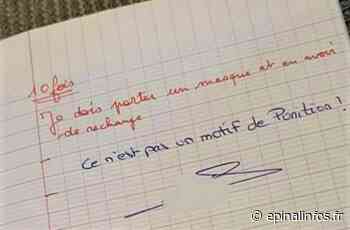 10 fois
Je dois porter un masque et en avoir
de rechange
Ce n'est pas un motif de Punition !
epinalinfos.fr